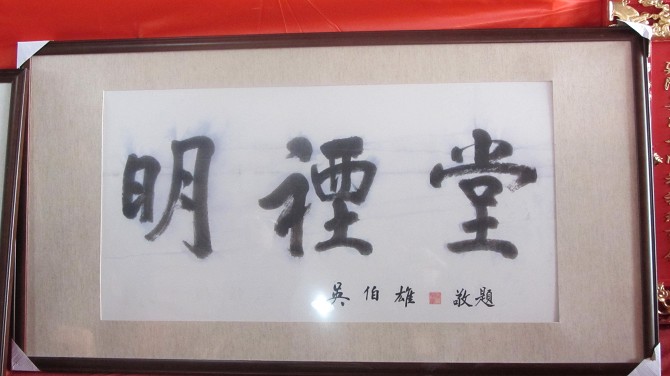 明禋堂
吳伯雄 敬題